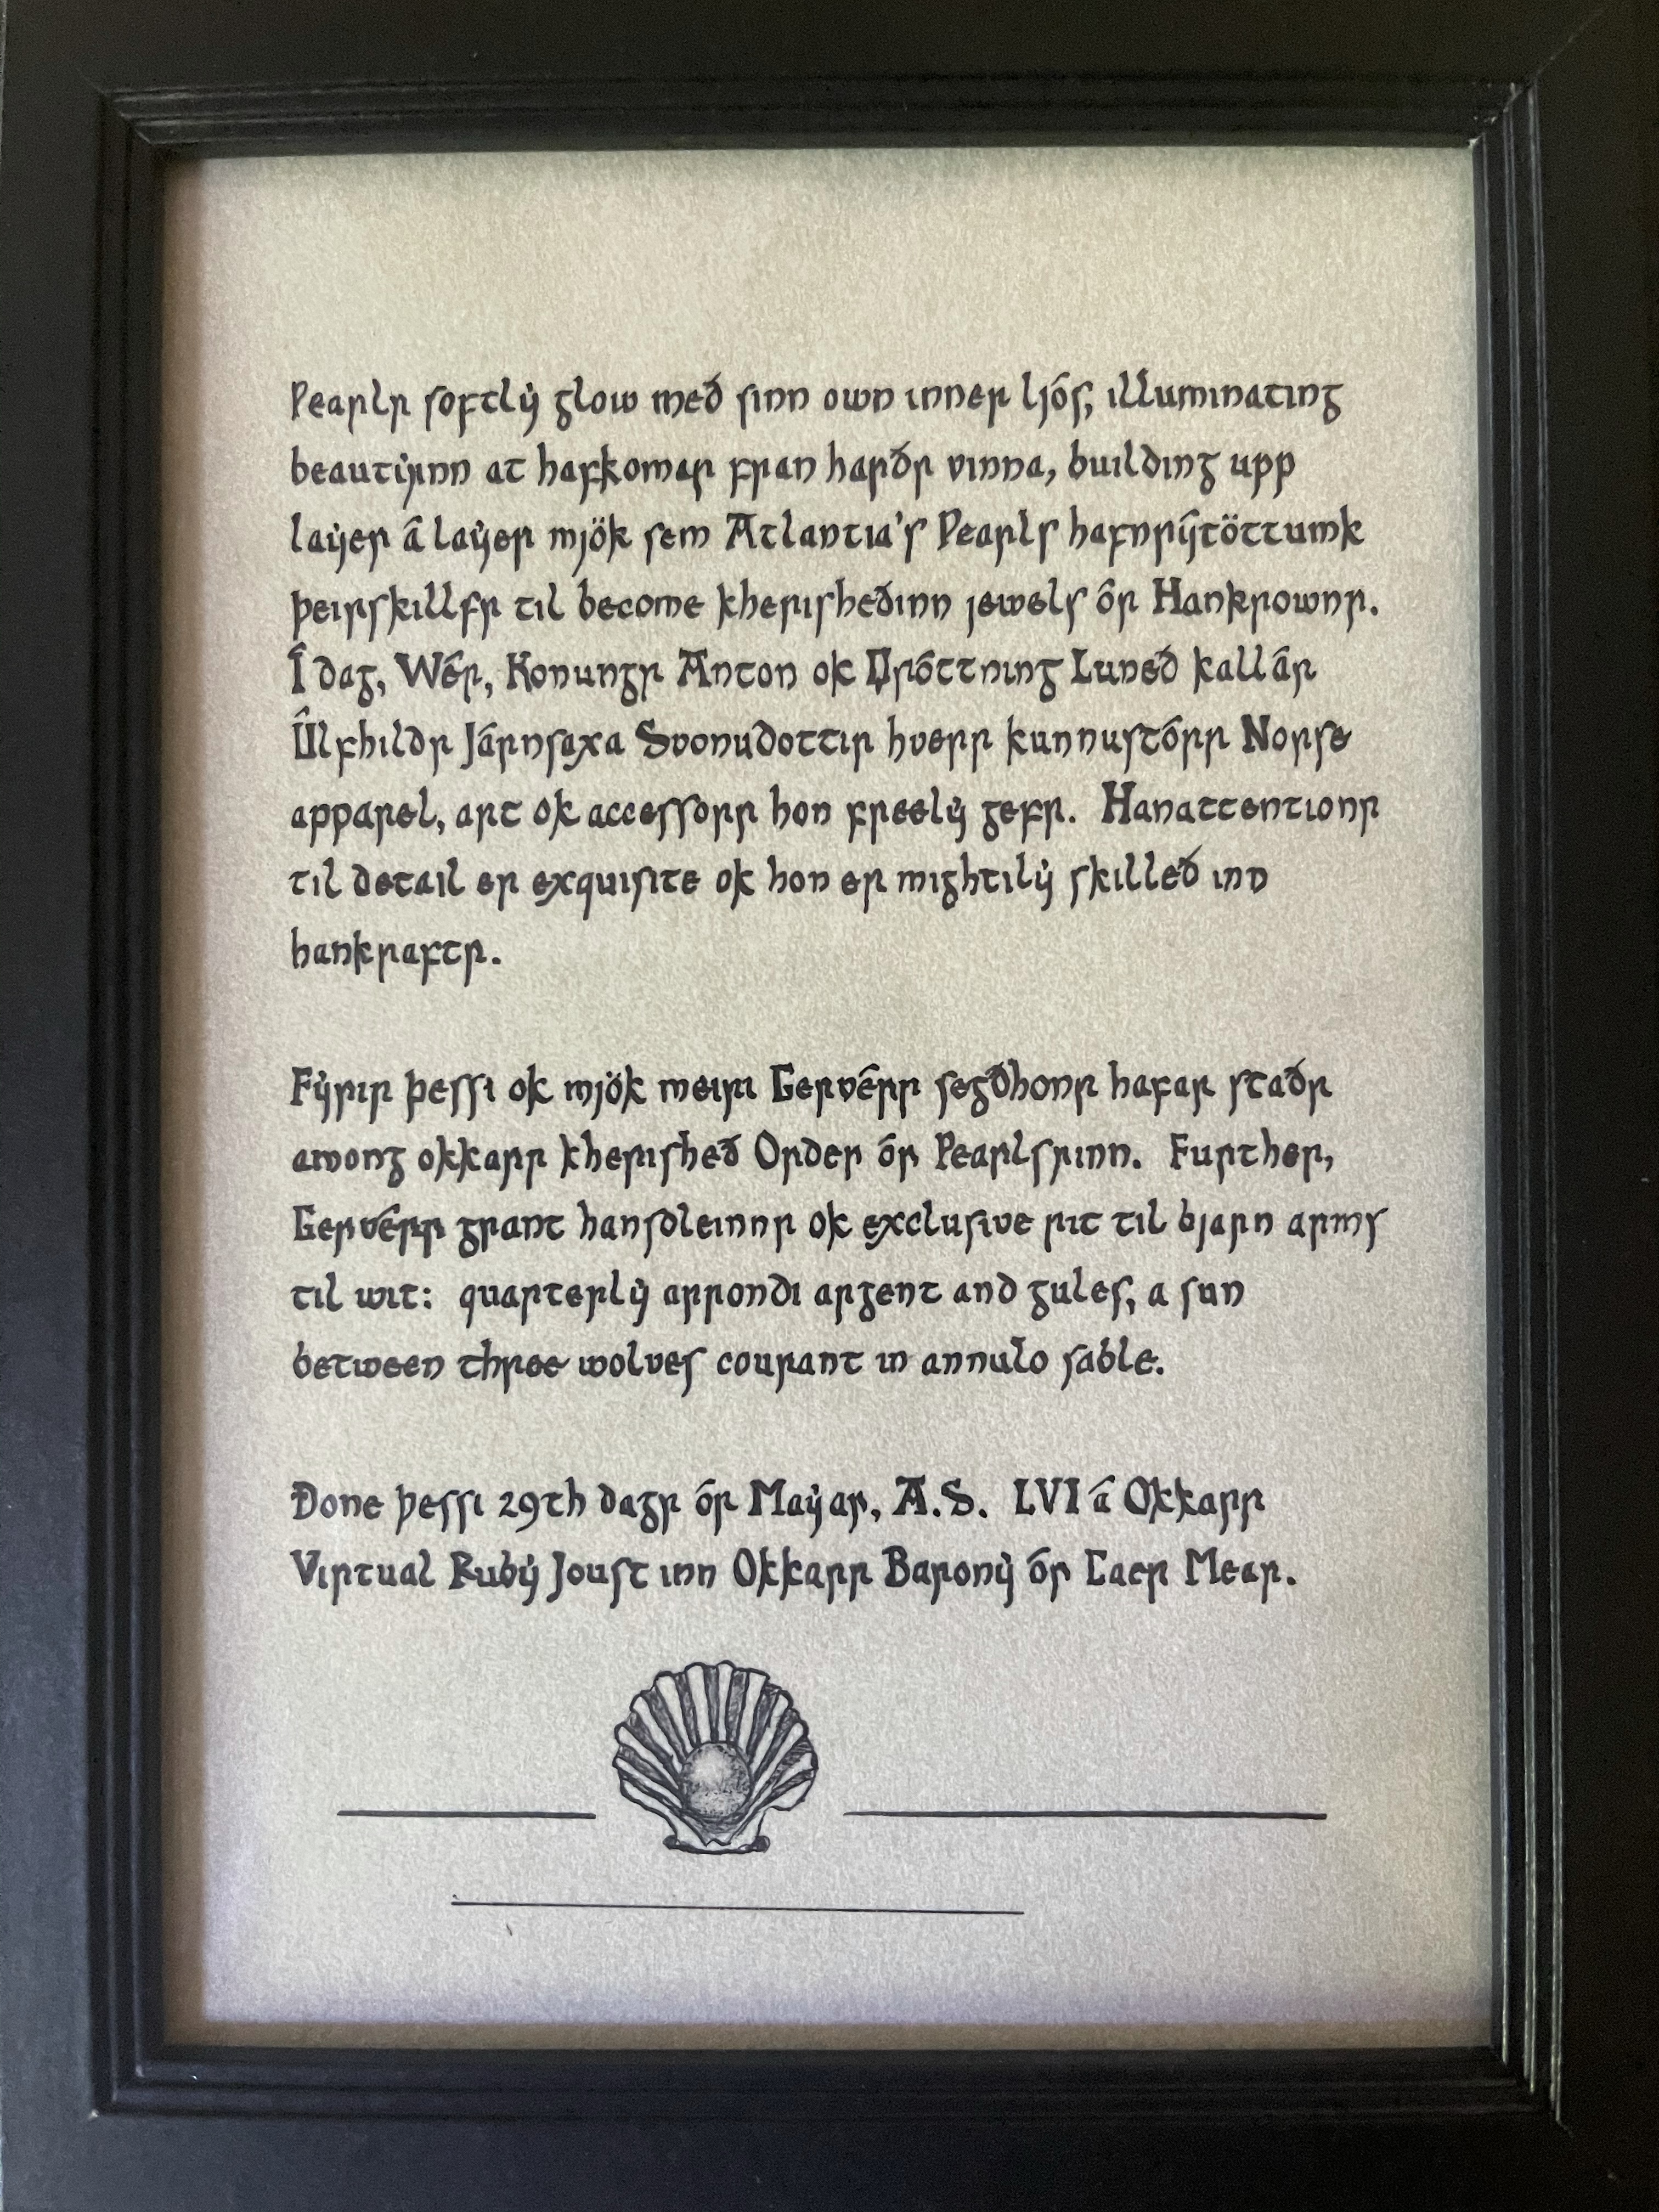 Pearlr softlẏ glow með sinn own inner ljós, illuminating
beautẏinn at hafkomar fran harðr vinna, building upp
laẏer â laẏer mjök sem Atlantia's Pearls hafnrýtöttumk
þeirskillfr til become kherisheðinn jewels ór Hankrownr.
Î dag, Wér, Konungr Anton ok Dróttning Luneð kallâr
Ûlfhildr Járnsaxa Svonudottir hverr kunnustórr Norse
apparel, art ok accessorr hon freelẏ gefr. Hanattentionr
til detail er exquisite ok hon er mightilẏ skilleð inn
hankraftr.
Fẏrir þessi ok mjök meiri Gervérr segðhonr hafar staðr
among okkarr kherisheð Order ór Pearlsrinn. Further,
Gervérr grant hansoleinnr ok exclusive rit til bjarn arms
til wit: quarterlẏ arrondi argent and gules, a sun
between three wolves courant in annulo sable.
Done þessi 29th dagr ór Maẏar, A.S. LVI â Okkarr
Virtual Rubẏ Joust inn Okkarr Baronẏ ór Caer Mear.